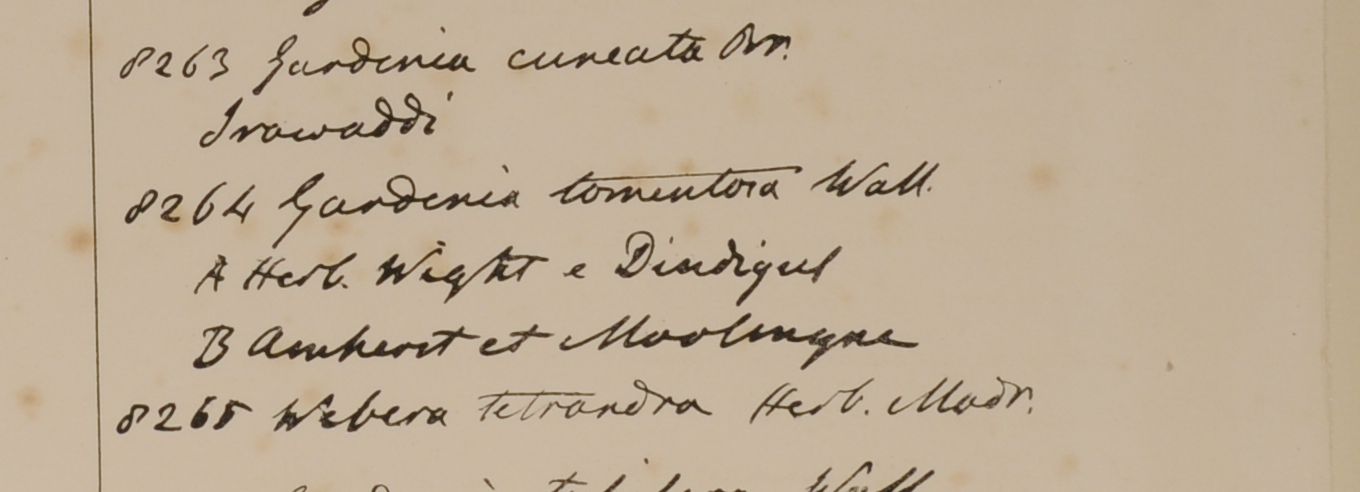 8263 Gardenia cuneata Br.
Irawaddi
8264 Gardenia tomentosa Wall.
A Herb. Wight e Dindigul
B Amherst et Moolmyne
8265 Webera tetrandra Herb. Madr.
Wall